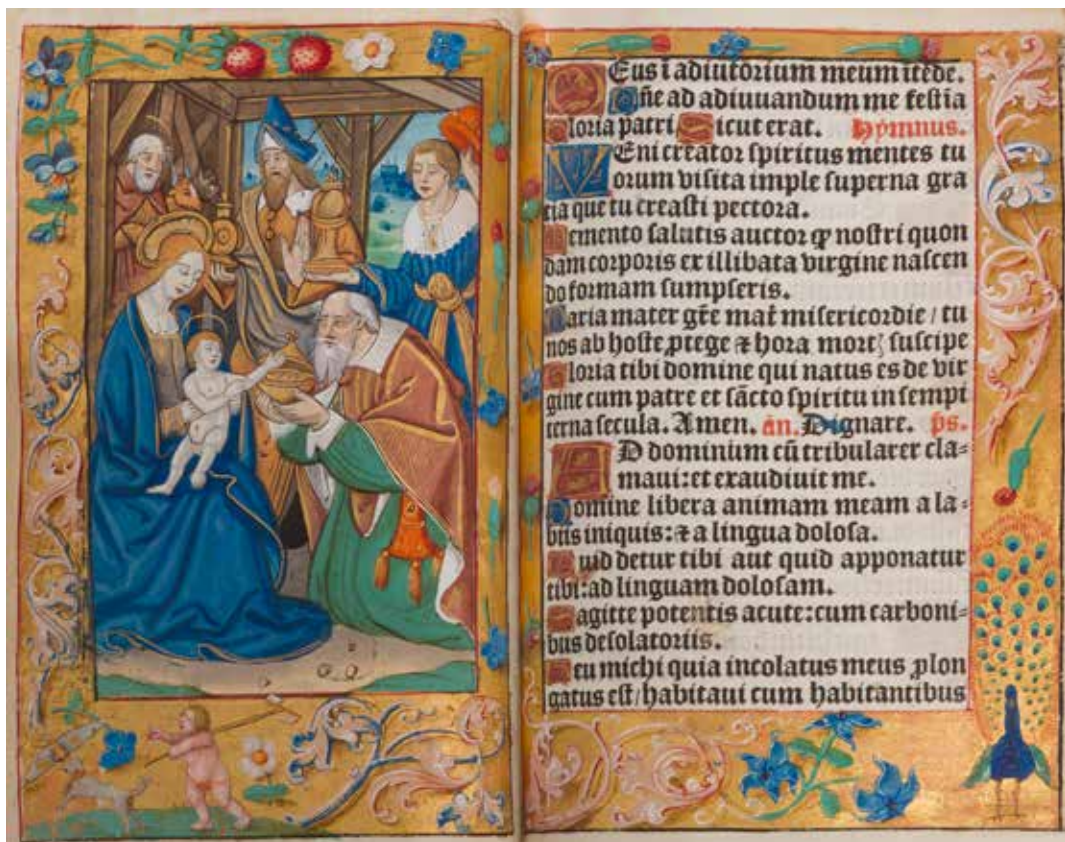 DEus ī adiutorium meum ītēde.
Dñe ad adiuuandum me feſtīa
Gloria patri. Sicut erat. Hymnus.
VEni creator ſpiritus mentes tu
orum viſita imple ſuperna gra
tia que tu creaſti pectora.
Memento ſalutis auctor ꝙ noſtri quon
dam corporis ex illibata virgine naſcen
do formam ſumpſeris.
Maria mater gr̄e mat̄ miſericordie / tu
nos ab hoſte ꝓtege ⁊ hora mortꝭ ſuſcipe
Gloria tibi domine qui natus es de vir
gine cum patre et ſācto ſpiritu in ſempi
terna ſecula. Amen. an̄. Dignare. p̄s.
AD dominum cū tribularer cla⸗
maui: et exaudiuit me.
Domine libera animam meam a la⸗
biis iniquis: ⁊ a lingua doloſa.
Quid detur tibi aut quid apponatur
tibi: ad linguam doloſam.
Sagitte potentis acute: cum carboni⸗
bus deſolatoriis.
Heu michi quia incolatus meus ꝓlon
gatus eſt / habitaui cum habitantibus